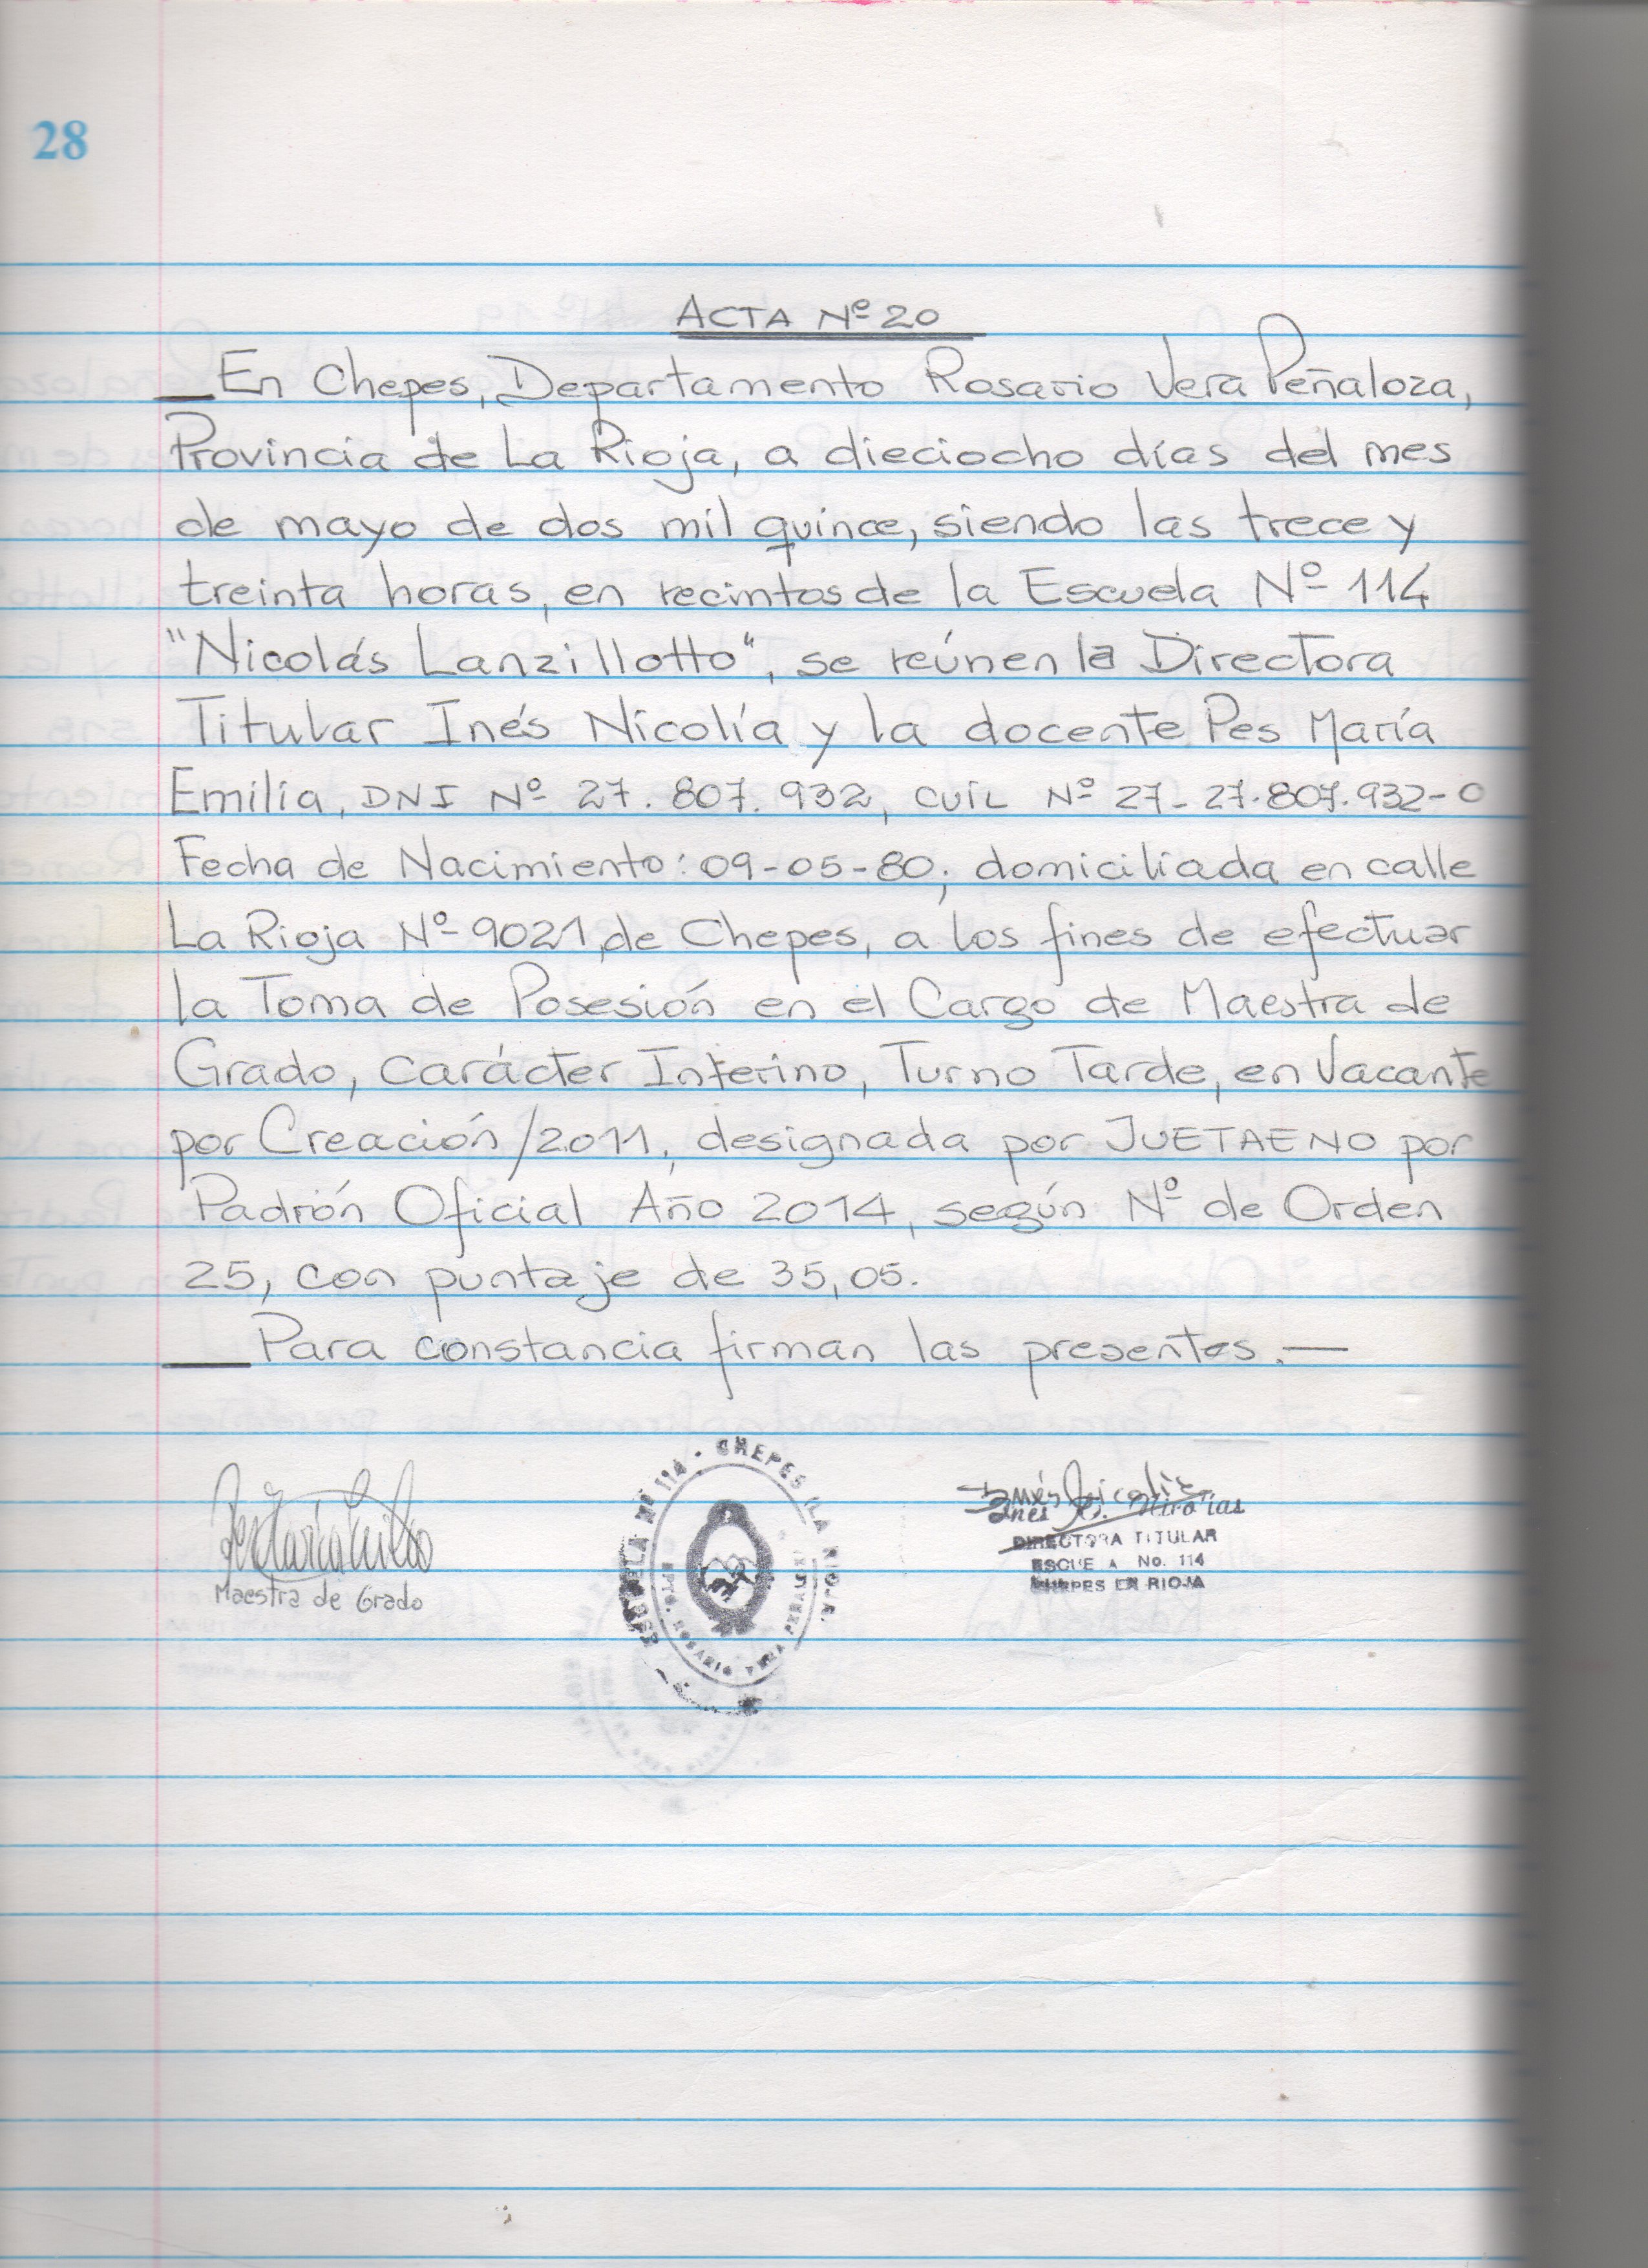 28
ACTA Nº 20
En Chepes, Departamento Rosario Vera Peñaloza,
Provincia de La Rioja, a dieciocho días del mes
de mayo de dos mil quince, siendo las trece y
treinta horas, en recintos de la Escuela Nº 114
"Nicolás Lanzillotto", se reúnen la Directora
Titular Inés Nicolía y la docente Pes María
Emilia, DNI Nº 27.807.932, CUIL Nº 27-27.807.932-0
Fecha de Nacimiento: 09-05-80; domiciliada en calle
La Rioja Nº 9021, de Chepes, a los fines de efectuar
la Toma de Posesión en el Cargo de Maestra de
Grado, Carácter Interino, Turno Tarde, en Vacante
por Creación/2011, designada por JUETAENO por
Padrón Oficial Año 2014, según Nº de Orden
25, con puntaje de 35,05.
Para constancia firman las presentes.—
Maestra de Grado
ESCUELA Nº 114 - CHEPES (LA RIOJA)
DPTO. ROSARIO VERA PEÑALOZA
DIRECTORA TITULAR
ESCUELA No. 114
CHEPES LA RIOJA